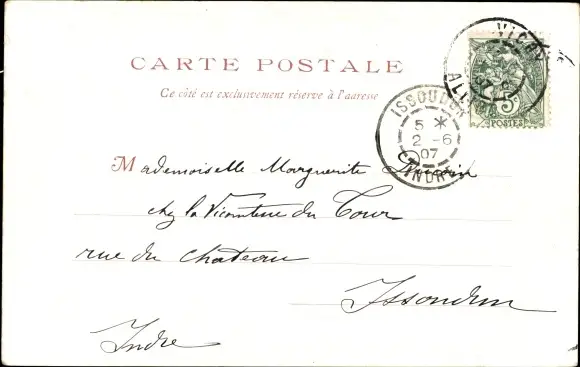 CARTE POSTALE
Ce côté est exclusivement réservé à l'adresse
VICHY
ALLIER
5c
POSTES
ISSOUDUN
5 *
2 - 6
07
INDRE
Mademoiselle Marguerite
chez la Vicomtesse du Tour
rue du chateau
Issoudun
Indre